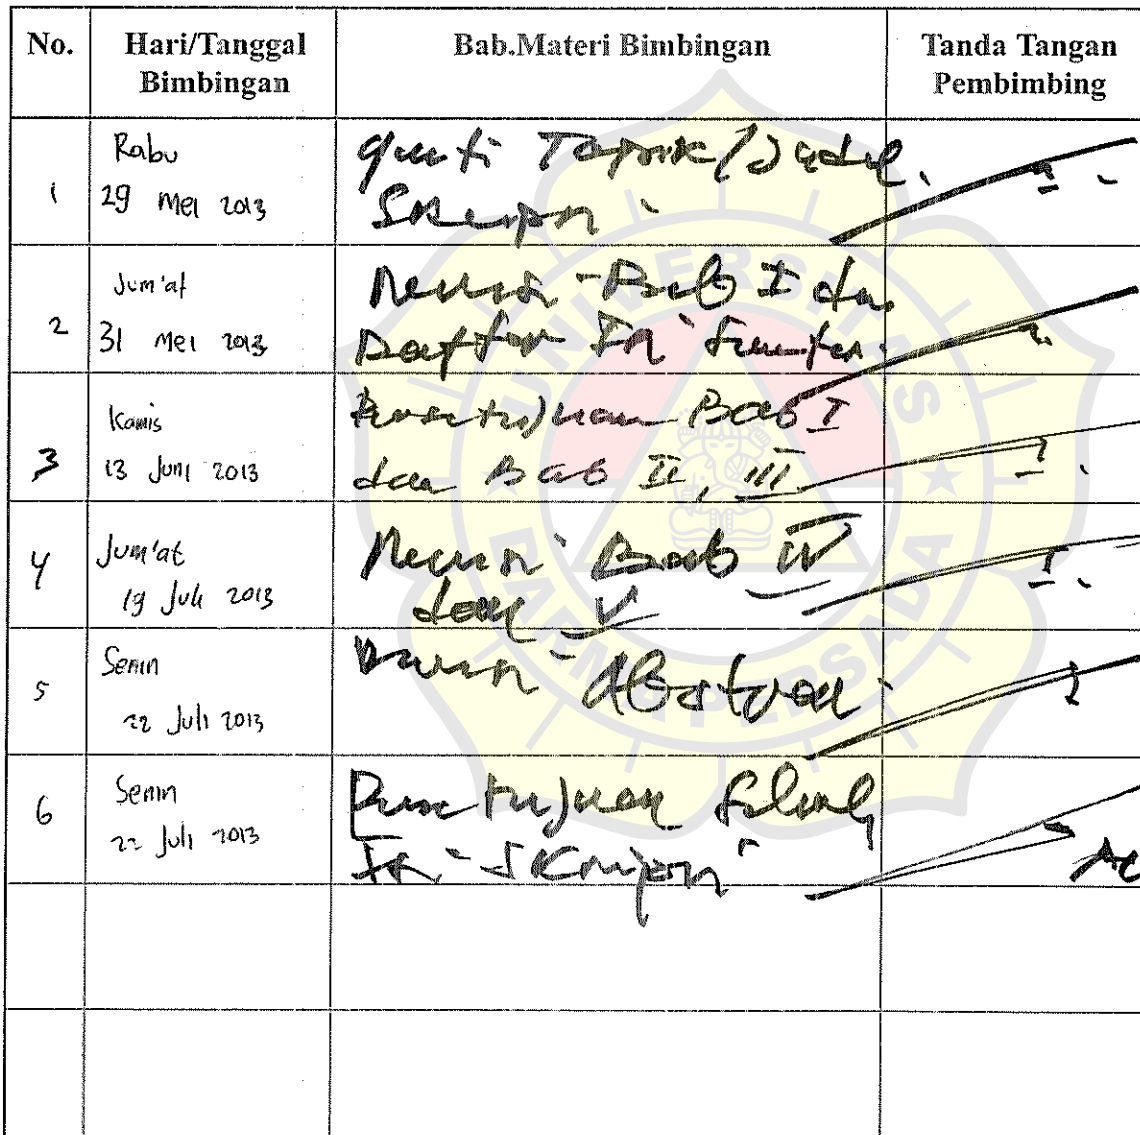 No. Hari/Tanggal Bimbingan Bab.Materi Bimbingan Tanda Tangan Pembimbing
1 Rabu 29 Mei 2013 ganti Topik/Judul
Skripsi
2 Jum'at 31 Mei 2013 Revisi Bab I dan
Daftar Isi
3 Kamis 13 Juni 2013 Persetujuan Bab I
dan Bab II, III
4 Jum'at 19 Juli 2013 Revisi Bab IV
dan V
5 Senin 22 Juli 2013 Revisi Abstrak
6 Senin 22 Juli 2013 Persetujuan
Isi Skripsi
UNIVERSITAS
DARMA PERSADA